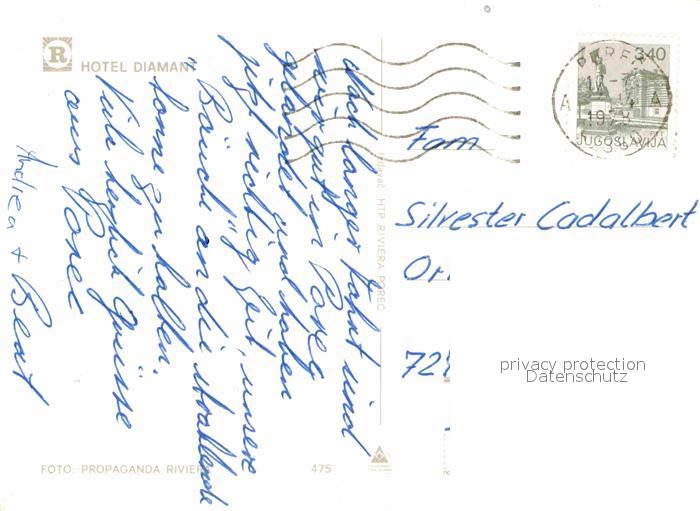 HOTEL DIAMANT
Nach langer Fahrt sind
wir gut in Poreč
gelandet und haben
jetzt richtig Zeit, unsere
"Bäuche" an die strahlende
Sonne zu halten.
Viele herzlich Grüsse
aus Poreč
Andrea + Beat
FOTO: PROPAGANDA RIVIERA
475
HTP RIVIERA POREČ
3,40
JUGOSLAVIJA
Fam
Silvester Cadalbert
privacy protection
Datenschutz